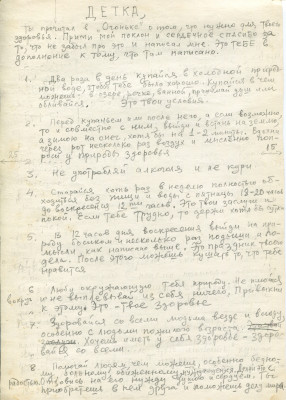 ДЕТКА,
Ты прочитал в „Огоньке" о том, что нужно для Твоего
здоровья. Прими мой поклон и сердечное спасибо за
то, что не забыл про это и написал мне. Это ТЕБЕ в
дополнение к тому, что там написано.
1. Два раза в день купайся в холодной природ-
ной воде, чтобы тебе было хорошо. Купайся в чем
можешь: в озере, речке, ванной, принимай душ или
обливайся. Это твои условия.
2. Перед купанием или после него, а если возможно,
то и совместно с ним, выйди и встань на землю,
а зимой на снег, хотя бы на 1-2 минуты. Вдохни
через рот несколько раз воздух и мысленно попро-
си у природы здоровья
3. Не употребляй алкоголя и не кури
4. Старайся хоть раз в неделю полностью об-
ходиться без пищи и воды с пятницы 18-20 часов
до воскресения 12ти часов. Это твои заслуги и
покой. Если тебе трудно, то держи хотя бы сутки
5. В 12 часов дня воскресения выйди на при-
роду босиком и несколько раз подыши и по-
мысли как написано выше. Это праздник твоего
дела. После этого можешь кушать то, что тебе
нравится
6. Люби окружающую тебя природу. Не плюйся
вокруг и не выплевывай из себя ничего. Привыкни
к этому. Это - твое здоровье
7. Здоровайся со всеми людьми везде и всюду
особенно с людьми пожилого возраста.
Хочешь иметь у себя здоровье - здоро-
вайся со всеми.
8. Помогай людям чем можешь, особенно бедно-
му, больному, обиженному, нуждающемуся. Делай
это с радостью. Отзовись на его нужду душою и сердцем. Ты
приобретешь в нем друга и поможешь делу мира.